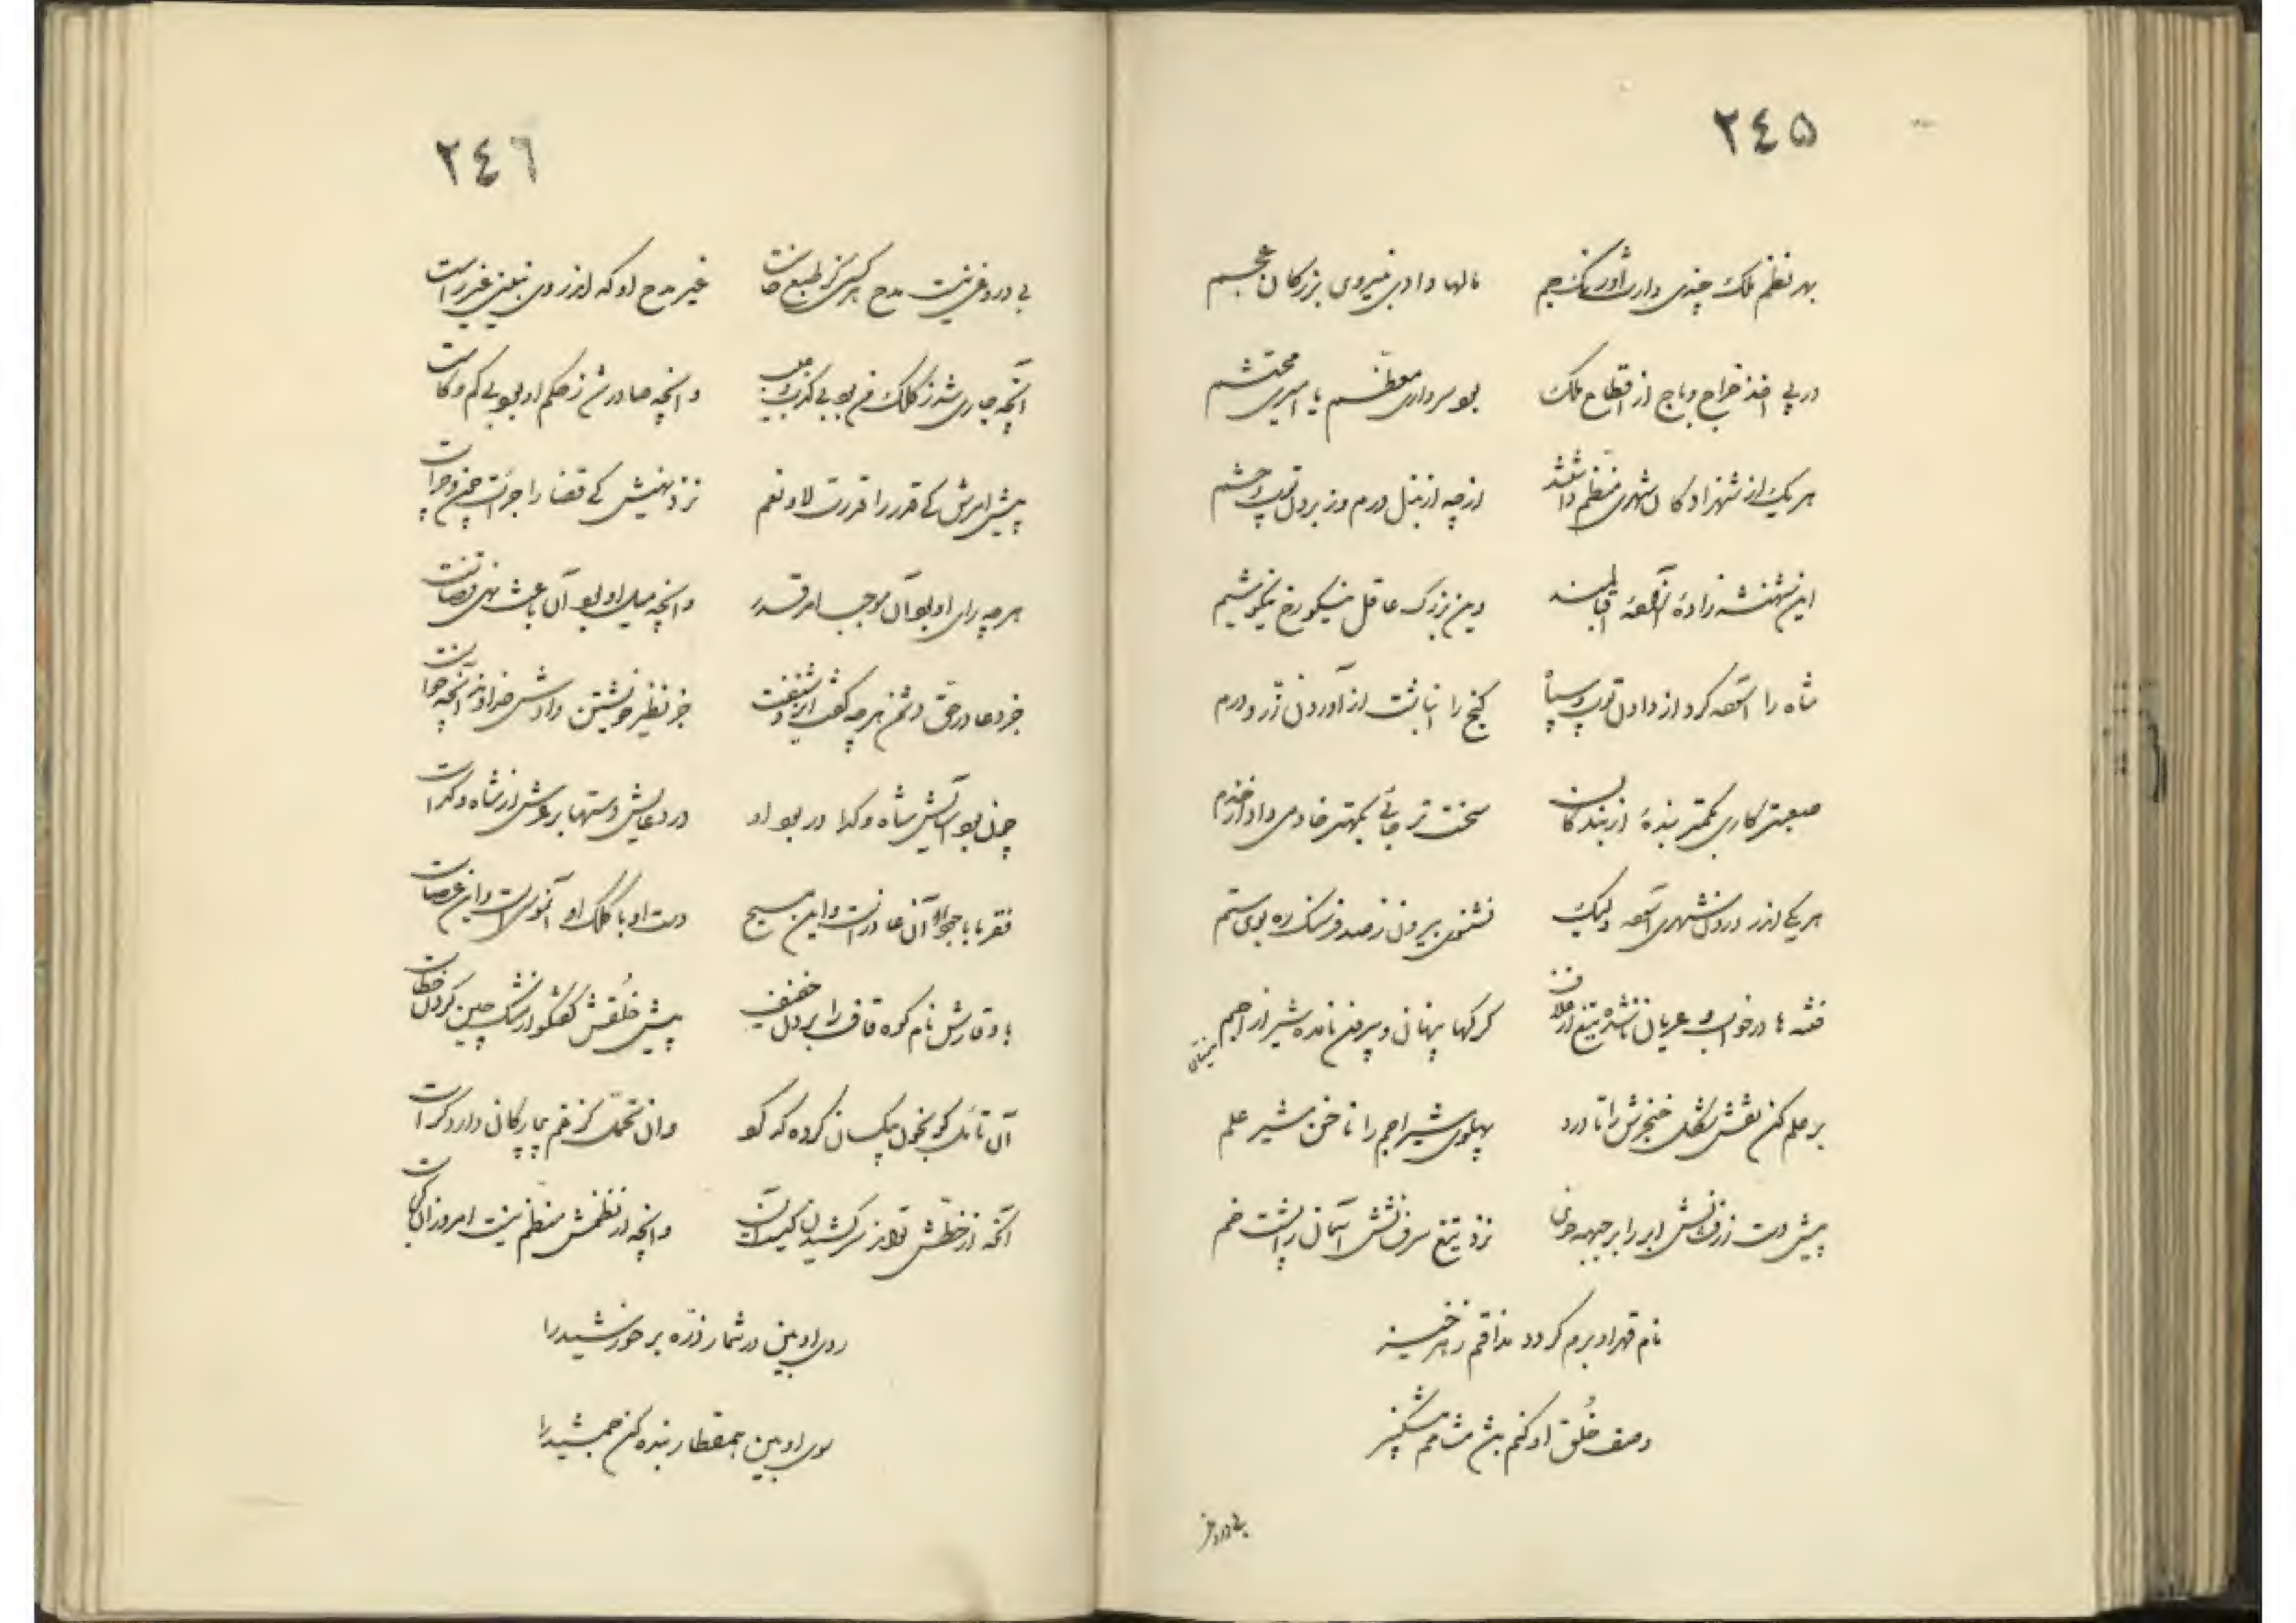 ٢٤٥
بهر نظم ملک چندی وارث اورنک جم مالها دادی بنیروی بزرکان عجم
در پی اخذ خراج و باج از اقطاع ملک بود سرداری معظم یا امیری محتشم
هر یک از شهزادکان شهری منظم داشتند ازچه از بذل درم وز بردن توپ و حشم
این شهنشه زادهٔ آقبالمند وین بزرک عاقل نیکو رخ نیکو شیم
شاه را آسوده کرد از دادن توپ و سپاه کنج را انباشت از آوردن زر و درم
صعبتر کاری بکمتر بندهٔ از بندکان سخت تر جائی بکهتر خادمی داد از خدم
هر یکی اندر درون شهری آسوده ولیک نشنوی بیرون ز صد فرسنک ره بوی ستم
فتنه ها در خواب و عریان ناشده تیغ از غلاف کرکها پنهان و بیرون نامده شیر از اجم
بر علم کن نقش شکل خنجرش را تا درد پهلوی شیر اجم را ناخن شیر علم
پیش دست زرفشانش ابر را بر جبهه خوی نزد تیغ سرفشانش آسمان را پشت خم
نام قهر او برم کردد مذاقم زهرخیز
وصف خلق او کنم باشد مشامم مشکبیز
بی دروغی
٢٤٦
بی دروغی نیست مدح هر کسی کز طبع خاست غیر مدح او که اندر وی نبینی غیر راست
آنچه جاری شد ز کلک من بود بی کذب و میل وانچه صادر شد ز حکم او بود بی کم و کاست
پیش امرش کی قدر را قدرت لا و نعم نزد نهیش کی قضا را جرأت چون و چراست
هرچه رای او بود آن موجب امر قدر وانچه میل او بود آن باعث نهی قضاست
جز دعا در حق دشمن هرچه کفت ایزد شنفت جز نظیر خویشتن دادش خداوند آنچه خواست
چون بود آسایش شاه و کدا در بود او در دعایش دستها بر عرش از شاه و کداست
فقر با با جود او آن عاذر است و این مسیح دست او با کلک او آن موسی است و این عصاست
با وقارش نام کوه قاف را بردن خفیف پیش خلقش کفتکو از مشک چین کردن خطاست
آنکه از خطش تواند سر کشیدن کیست آن وانچه از نظمش منظم نیست امروز آن کجاست
روی او بین در شمار ذره بر خورشید را
سوی او بین همقطار بنده کن جمشید را